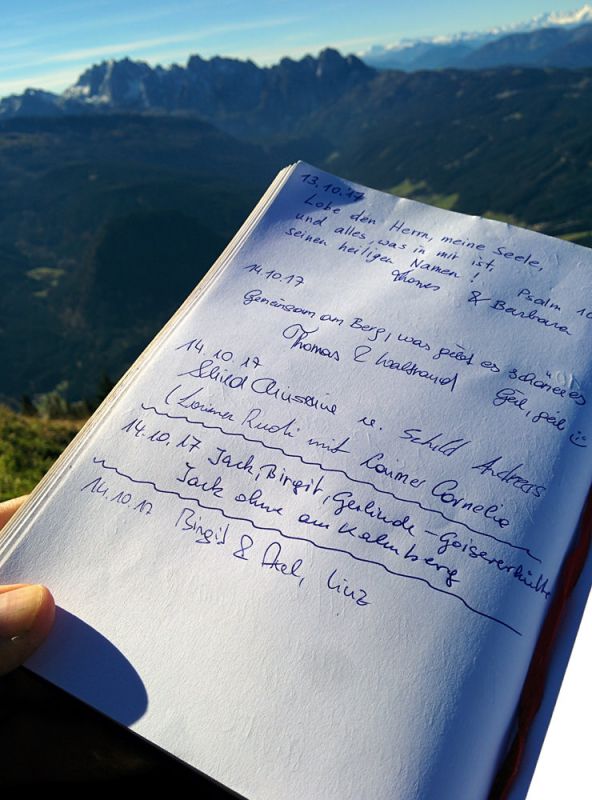 13.10.17
Lobe den Herrn, meine Seele,
und alles, was in mir ist,
seinen heiligen Namen! Psalm 10
Thomas & Barbara
14.10.17
Gemeinsam am Berg, was gibt es schöneres
Thomas & Waltraud Geil, geil
14.10.17
Schild Christine u. Schild Andreas
Rudi mit Cornelia
14.10.17 Jack, Birgit, Gerlinde - Goisererhütte
Jack ohne am Kalmberg
14.10.17 Birgit & Axel, Linz